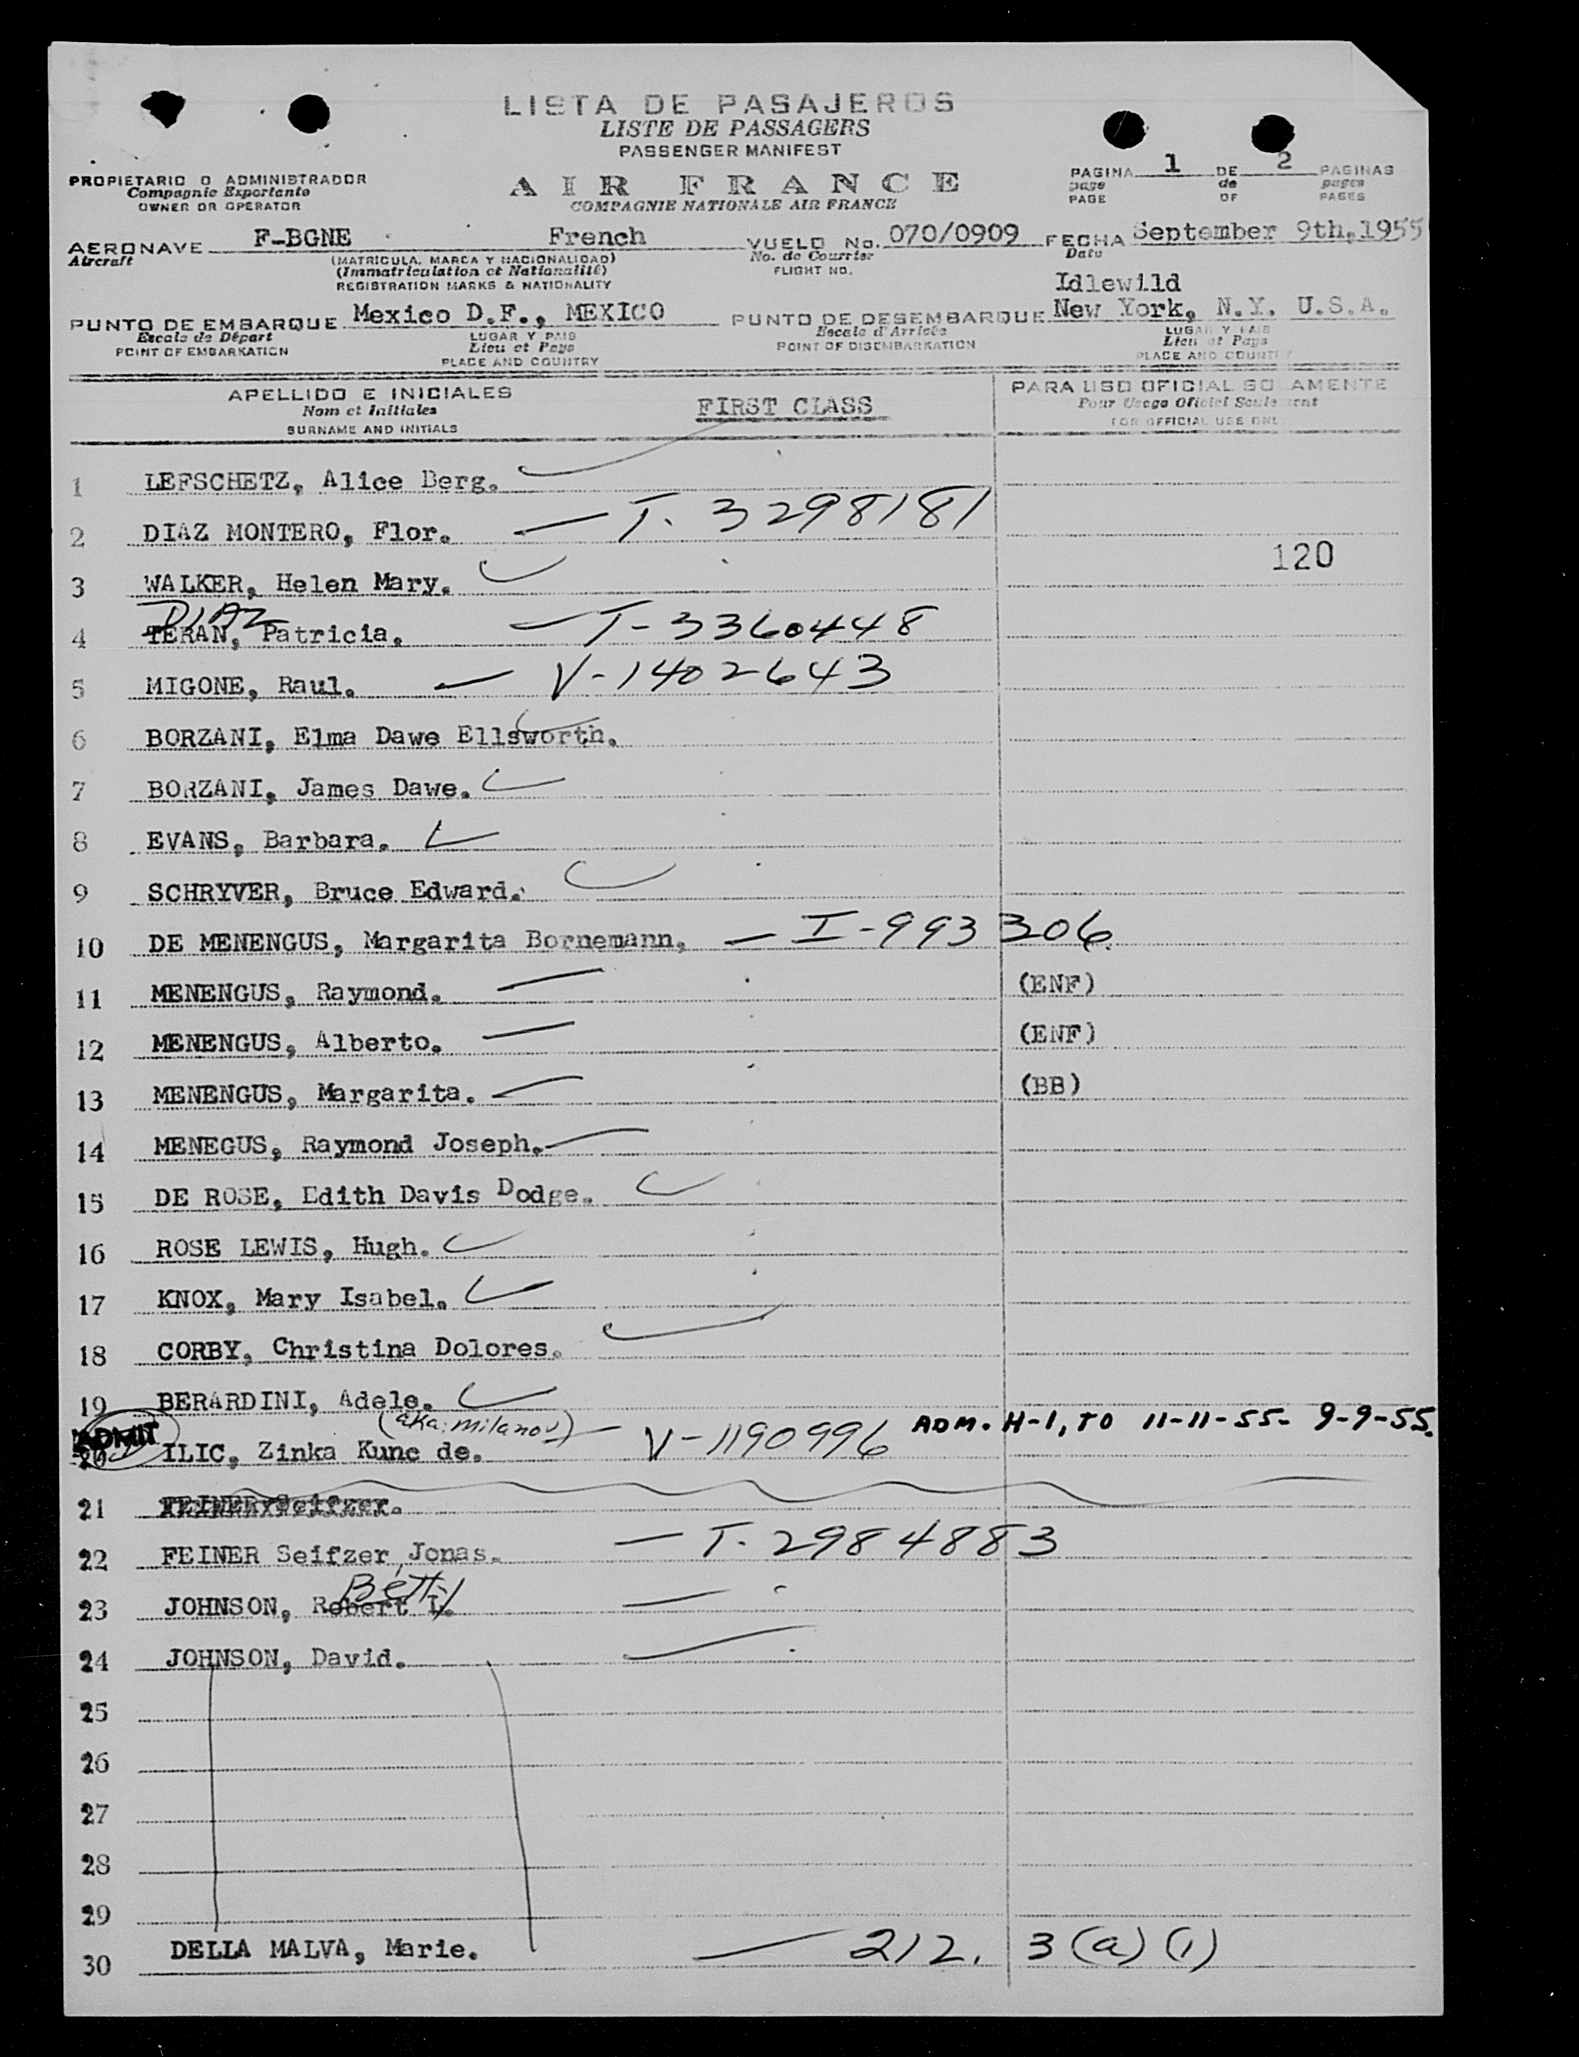 LISTA DE PASAJEROS
LISTE DE PASSAGERS
PASSENGER MANIFEST
PROPIETARIO O ADMINISTRADOR
Compagnie Exportante
OWNER OR OPERATOR
AIR FRANCE
COMPAGNIE NATIONALE AIR FRANCE
PAGINA 1 DE 2 PAGINAS
page de pages
PAGE OF PAGES
AERONAVE F-BGNE French VUELO No. 070/0909 FECHA September 9th,1955
Aircraft (MATRICULA, MARCA Y NACIONALIDAD) No. de Courrier Date
(Immatriculation et Nationalité) FLIGHT NO.
REGISTRATION MARKS & NATIONALITY
Idlewild
PUNTO DE EMBARQUE Mexico D.F., MEXICO PUNTO DE DESEMBARQUE New York, N.Y. U.S.A.
Escale de Départ LUGAR Y PAIS Escale d'Arrivée LUGAR Y PAIS
POINT OF EMBARKATION Lieu et Pays POINT OF DISEMBARKATION Lieu et Pays
PLACE AND COUNTRY PLACE AND COUNTRY
APELLIDO E INICIALES FIRST CLASS PARA USO OFICIAL SOLAMENTE
Nom et Initiales Pour Usage Oficiel Seulement
SURNAME AND INITIALS FOR OFFICIAL USE ONL
1 LEFSCHETZ, Alice Berg.
2 DIAZ MONTERO, Flor. — T. 3298181
120
3 WALKER, Helen Mary.
DIAZ
4 TERAN, Patricia. — T-3360448
5 MIGONE, Raul. — V-1402643
6 BORZANI, Elma Dawe Ellsworth.
7 BORZANI, James Dawe.
8 EVANS, Barbara.
9 SCHRYVER, Bruce Edward.
10 DE MENENGUS, Margarita Bornemann, — I-993306.
11 MENENGUS, Raymond. (ENF)
12 MENENGUS, Alberto. (ENF)
13 MENENGUS, Margarita. (BB)
14 MENEGUS, Raymond Joseph.
15 DE ROSE, Edith Davis Dodge.
16 ROSE LEWIS, Hugh.
17 KNOX, Mary Isabel.
18 CORBY, Christina Dolores.
19 BERARDINI, Adele.
ADMIT (aka: milanov)
20 ILIC, Zinka Kunc de. — V-1190996 ADM. H-1, TO 11-11-55- 9-9-55.
21 FEINER Seifzer.
22 FEINER Seifzer, Jonas. — T. 2984883
Betty
23 JOHNSON, Robert L.
24 JOHNSON, David.
25
26
27
28
29
30 DELLA MALVA, Marie. — 212. 3 (a) (1)